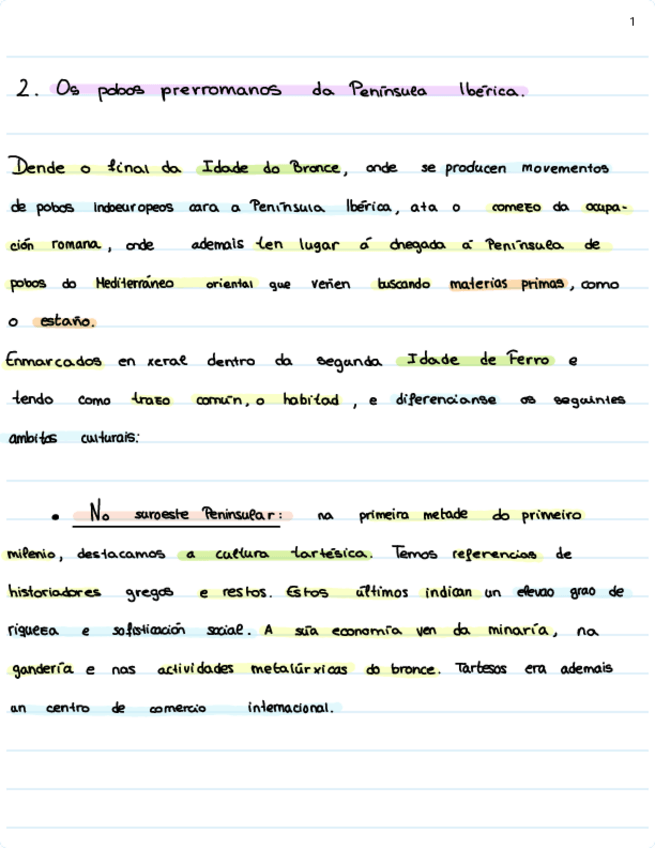 1
2. Os pobos prerromanos da Península Ibérica.
Dende o final da Idade do Bronce, onde se producen movementos
de pobos Indoeuropeos cara a Península Ibérica, ata o comezo da ocupa-
ción romana, onde ademais ten lugar á chegada á Península de
pobos do Mediterráneo oriental que veñen buscando materias primas, como
o estaño.
Enmarcados en xeral dentro da segunda Idade de Ferro e
tendo como trazo común, o habitad, e diferencianse os seguintes
ambitos culturais:
• No suroeste Peninsular: na primeira metade do primeiro
milenio, destacamos a cultura tartésica. Temos referencias de
historiadores gregos e restos. Estos últimos indican un elevao grao de
riqueza e sofisticación social. A súa economía ven da minaría, na
gandería e nas actividades metalúrxicas do bronce. Tartesos era ademais
un centro de comercio internacional.